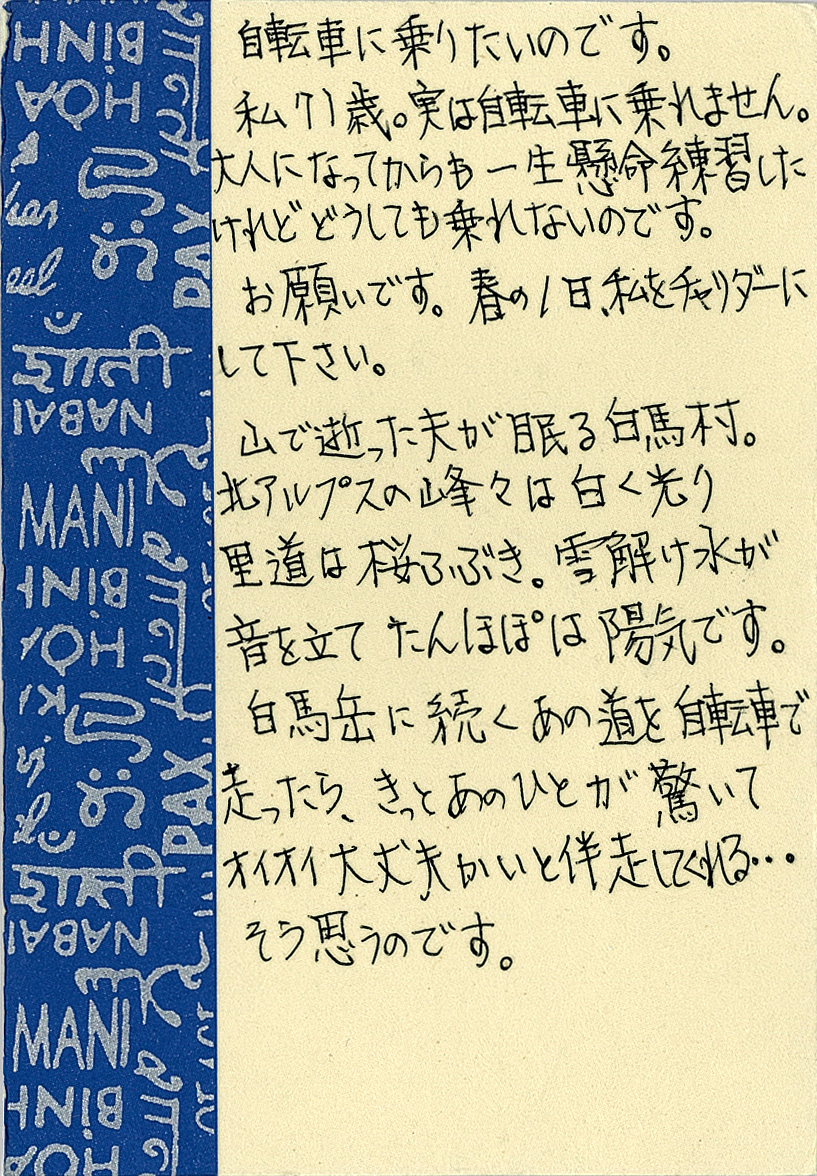 自転車に乗りたいのです。
私71歳。実は自転車に乗れません。
大人になってからも一生懸命練習した
けれどどうしても乗れないのです。
お願いです。春の1日、私をチャリダーに
して下さい。
山で逝った夫が眠る白馬村。
北アルプスの峰々は白く光り
里道は桜ふぶき。雪解け水が
音を立てたんほぽは陽気です。
白馬岳に続くあの道を自転車で
走ったら、きっとあのひとが驚いて
オイオイ大丈夫かいと伴走してくれる…
そう思うのです。
BINH
HOA
DAY
शान्ति
NABAI
MANI
BINH
HOA
PAX
शान्ति
NABAI
MANI
BINH
HOA